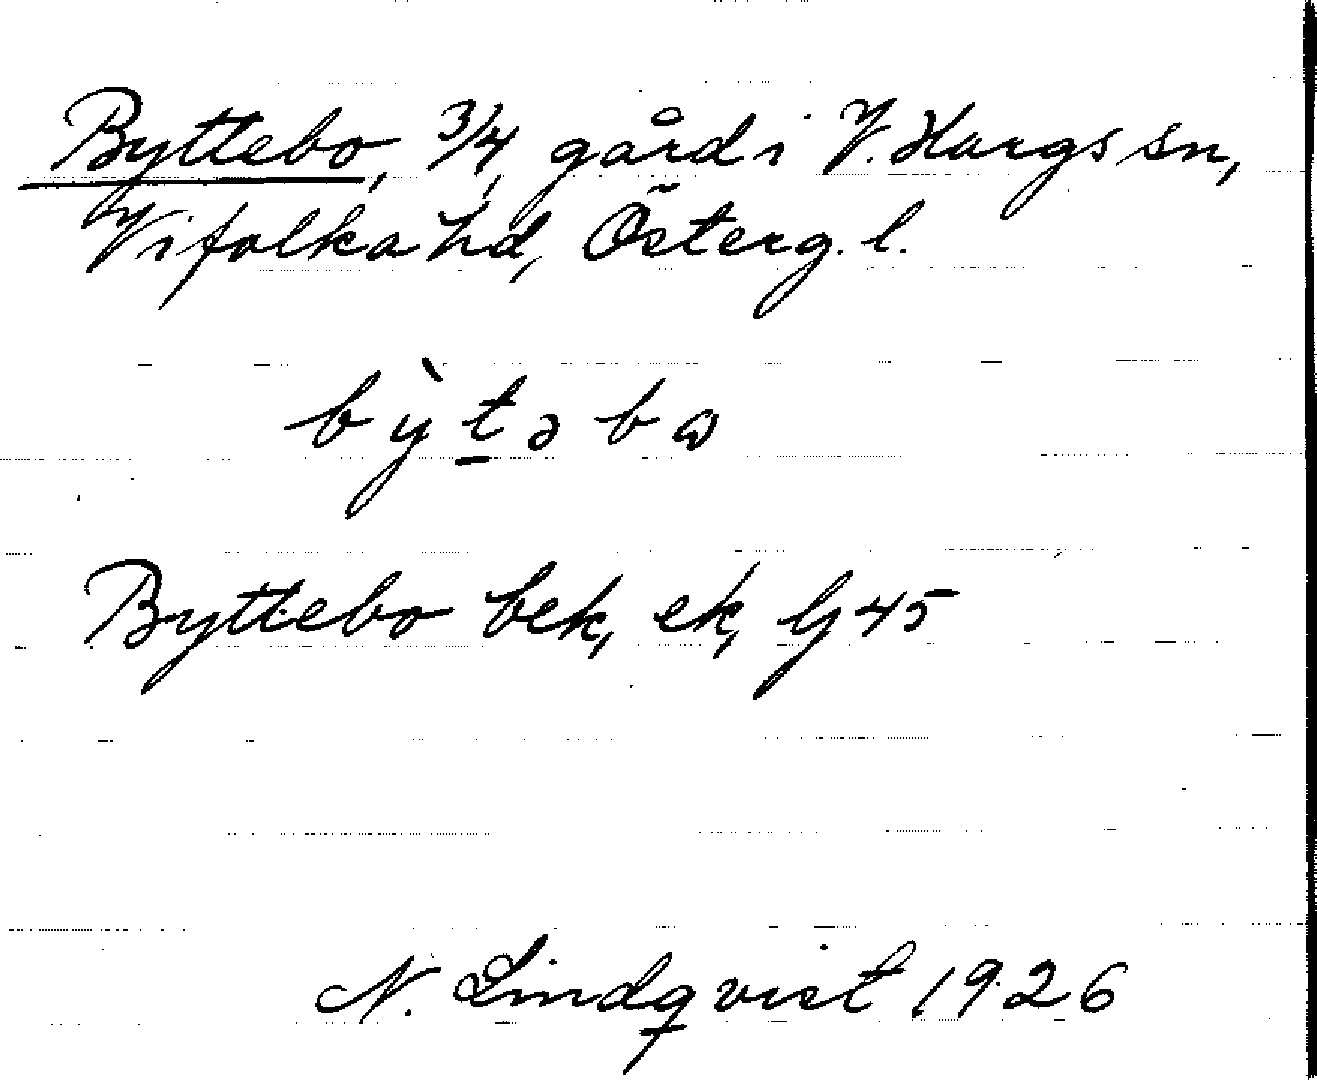 Byttebo, 3/4 gård i V. Hargs sn,
Vifolka hd, Österg. l.
bỳt̲əbω
Byttebo bek, ek, Gj 45
N. Lindqvist 1926